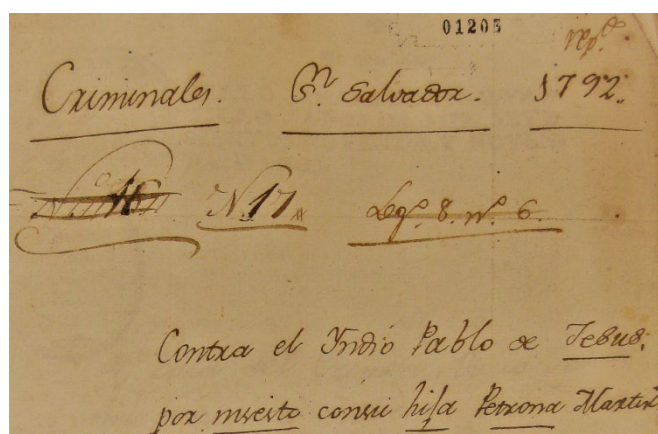 01203
rep.do
Criminales. Sn. Salvador. 1792.
N. 17. Leg.o 8. n.o 6.
Contra el Yndio Pablo de Jesus.
por incesto con su hija Petrona Martin